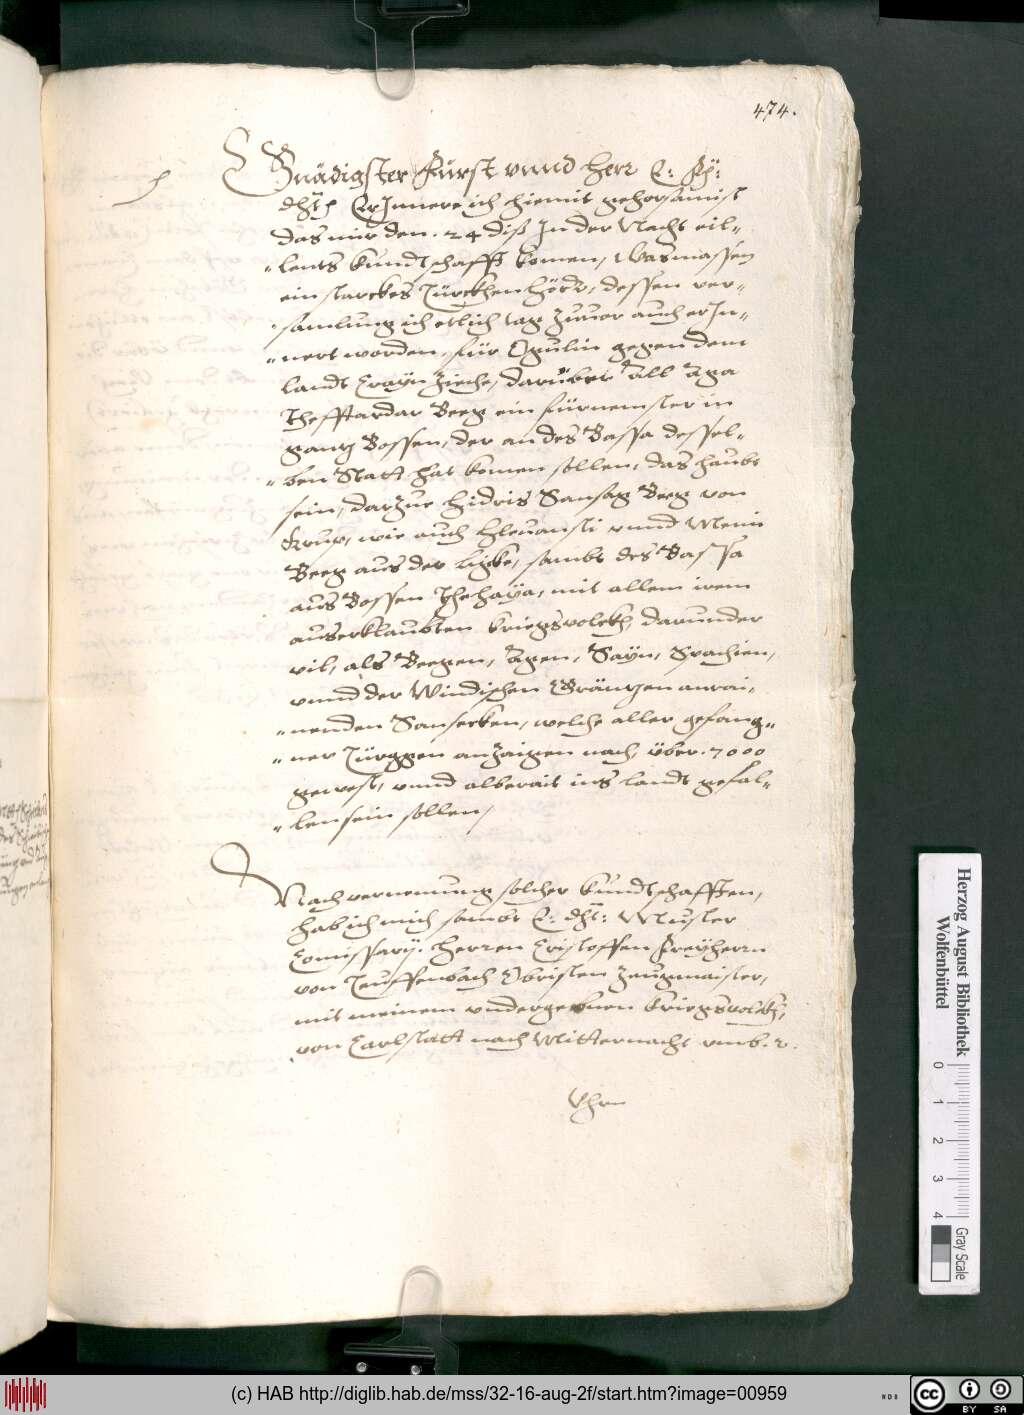 474.
Gnädigster Fürst vnnd Herr E: Fh:
dht: Erjnnere ich hiemit gehorsamist
das mir den .24 diß jn der Nacht eil„
„lents kundtschafft komen, Wasmassen
ein starckes Türckhen hör, dessen ver„
„samlung ich etlich tag zuuor auch erjn„
„nert worden, für Ogulin gegen dem
landt Crayn ziehe, darüber Alli Aga
Thefftardar Beeg ein fürnemster in
gantz Bossen, der an des Bassa dessel„
„ben Statt hat komen sollen, das haubt
sein, darzue Hidris Sansag Beeg von
Krup, wie auch Hleuansti vnnd Memi
Beeg aus der Ligke, sambt des Bassa
aus Bossen Thehaya, mit allem irem
auserklaubten kriegsvolckh, darunder
vil, als Beegen, Agen, Sayn, Spachien,
vnnd der Windischen Gräntzen anrai„
„nenden Sansecken, welche aller gefang„
„ner Türggen anzaigen nach, über .7000
gewest, vnnd alberait ins landt gefal„
„len sein sollen,
Nach vernemung solcher kundtschafften,
hab ich mich sambt E: dht: Muster
Comissary. Herren Cristoffen Freyherrn
von Teuffenbach Obristen Zeugmaister,
mit meinem vndergebnen kriegsvolckh,
von Carlstatt nach Mitternacht vmb .2.
Vhrn
Herzog August Bibliothek
Wolfenbüttel
0 1 2 3 4
Gray Scale
(c) HAB http://diglib.hab.de/mss/32-16-aug-2f/start.htm?image=00959
WDB
cc BY SA